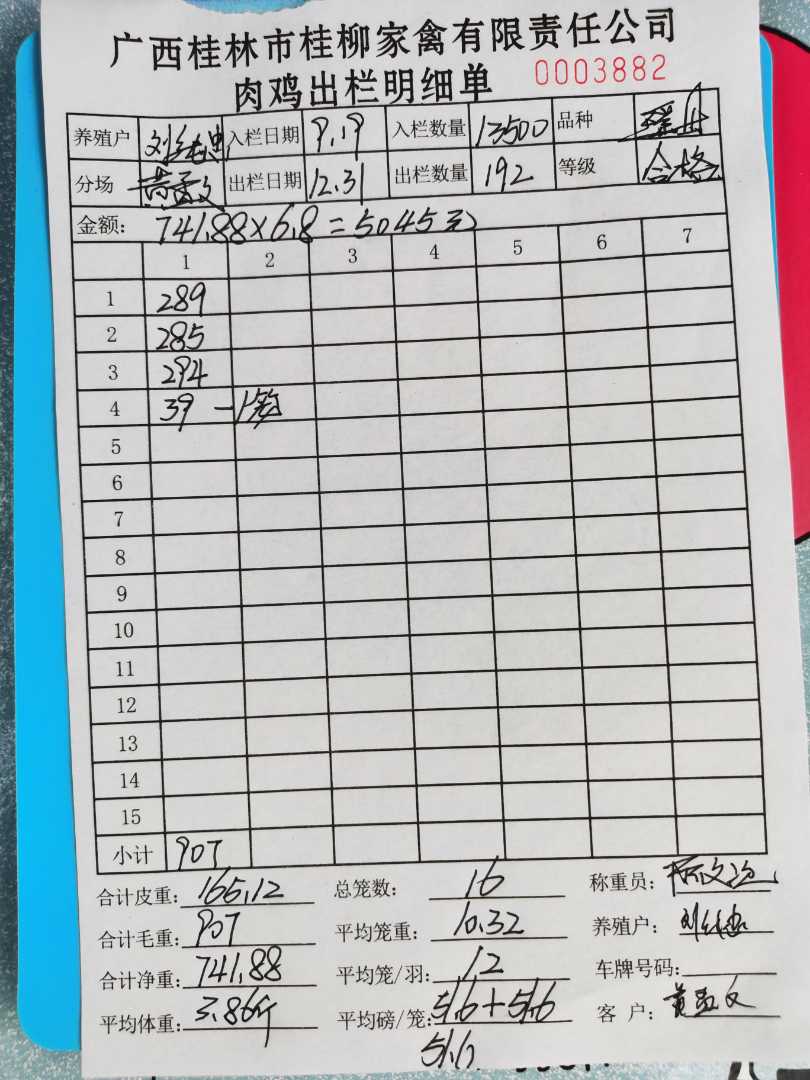 广西桂林市桂柳家禽有限责任公司
肉鸡出栏明细单 0003882
养殖户 入栏日期 9.19 入栏数量 13500 品种
分场 黄孟文 出栏日期 12.31 出栏数量 192 等级 合格
金额: 741.88×6.8=5045元
1 2 3 4 5 6 7
1 289
2 285
3 294
4 39 一筐
5
6
7
8
9
10
11
12
13
14
15
小计 907
合计皮重: 165.12 总笼数: 16 称重员:
合计毛重: 907 平均笼重: 10.32 养殖户:
合计净重: 741.88 平均笼/羽: 12 车牌号码:
平均体重: 3.86斤 平均磅/笼: 51.6+51.6 客 户: 黄孟文
51.6